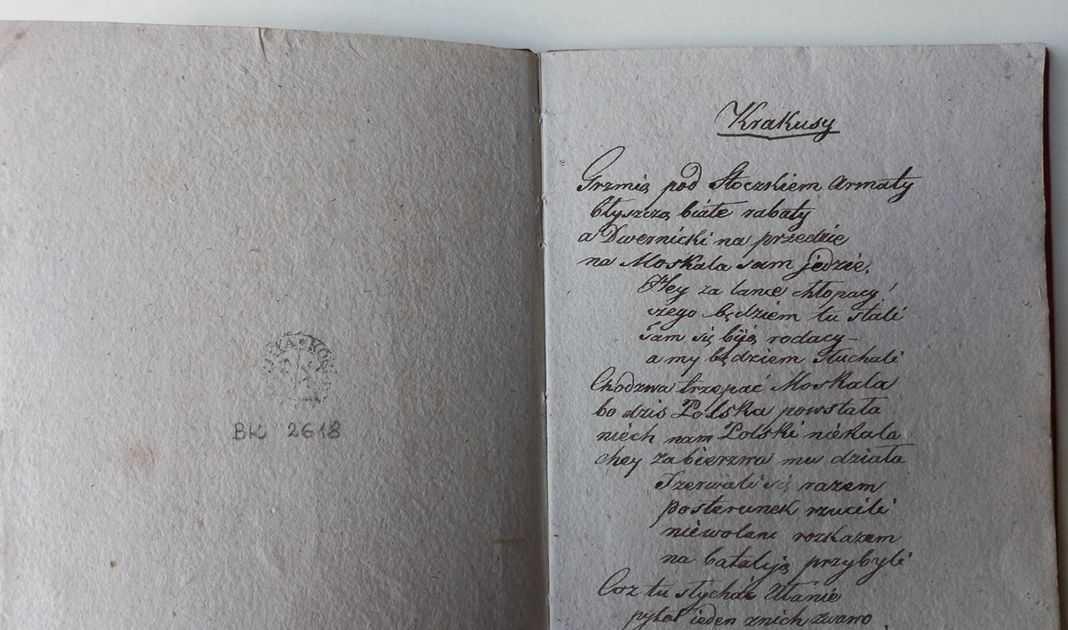 BK 2618
2
Krakusy
Grzmią pod Stoczkiem Armaty
błyszczą białe rabaty
a Dwernicki na przedzie
na Moskala sam jedzie.
Hey za lance chłopacy!
czego będziem tu stali
tam się biją rodacy –
a my będziem słuchali
Chodzwa trzepać Moskala
bo dziś Polska powstała
niech nam Polski niekala
hey zabierzwa mu działa
Zerwali się razem
posterunek rzucili
niewołani rozkazem
na bataliją przybyli
Coz tu słychać Ułanie
pytał ieden znich żwawo